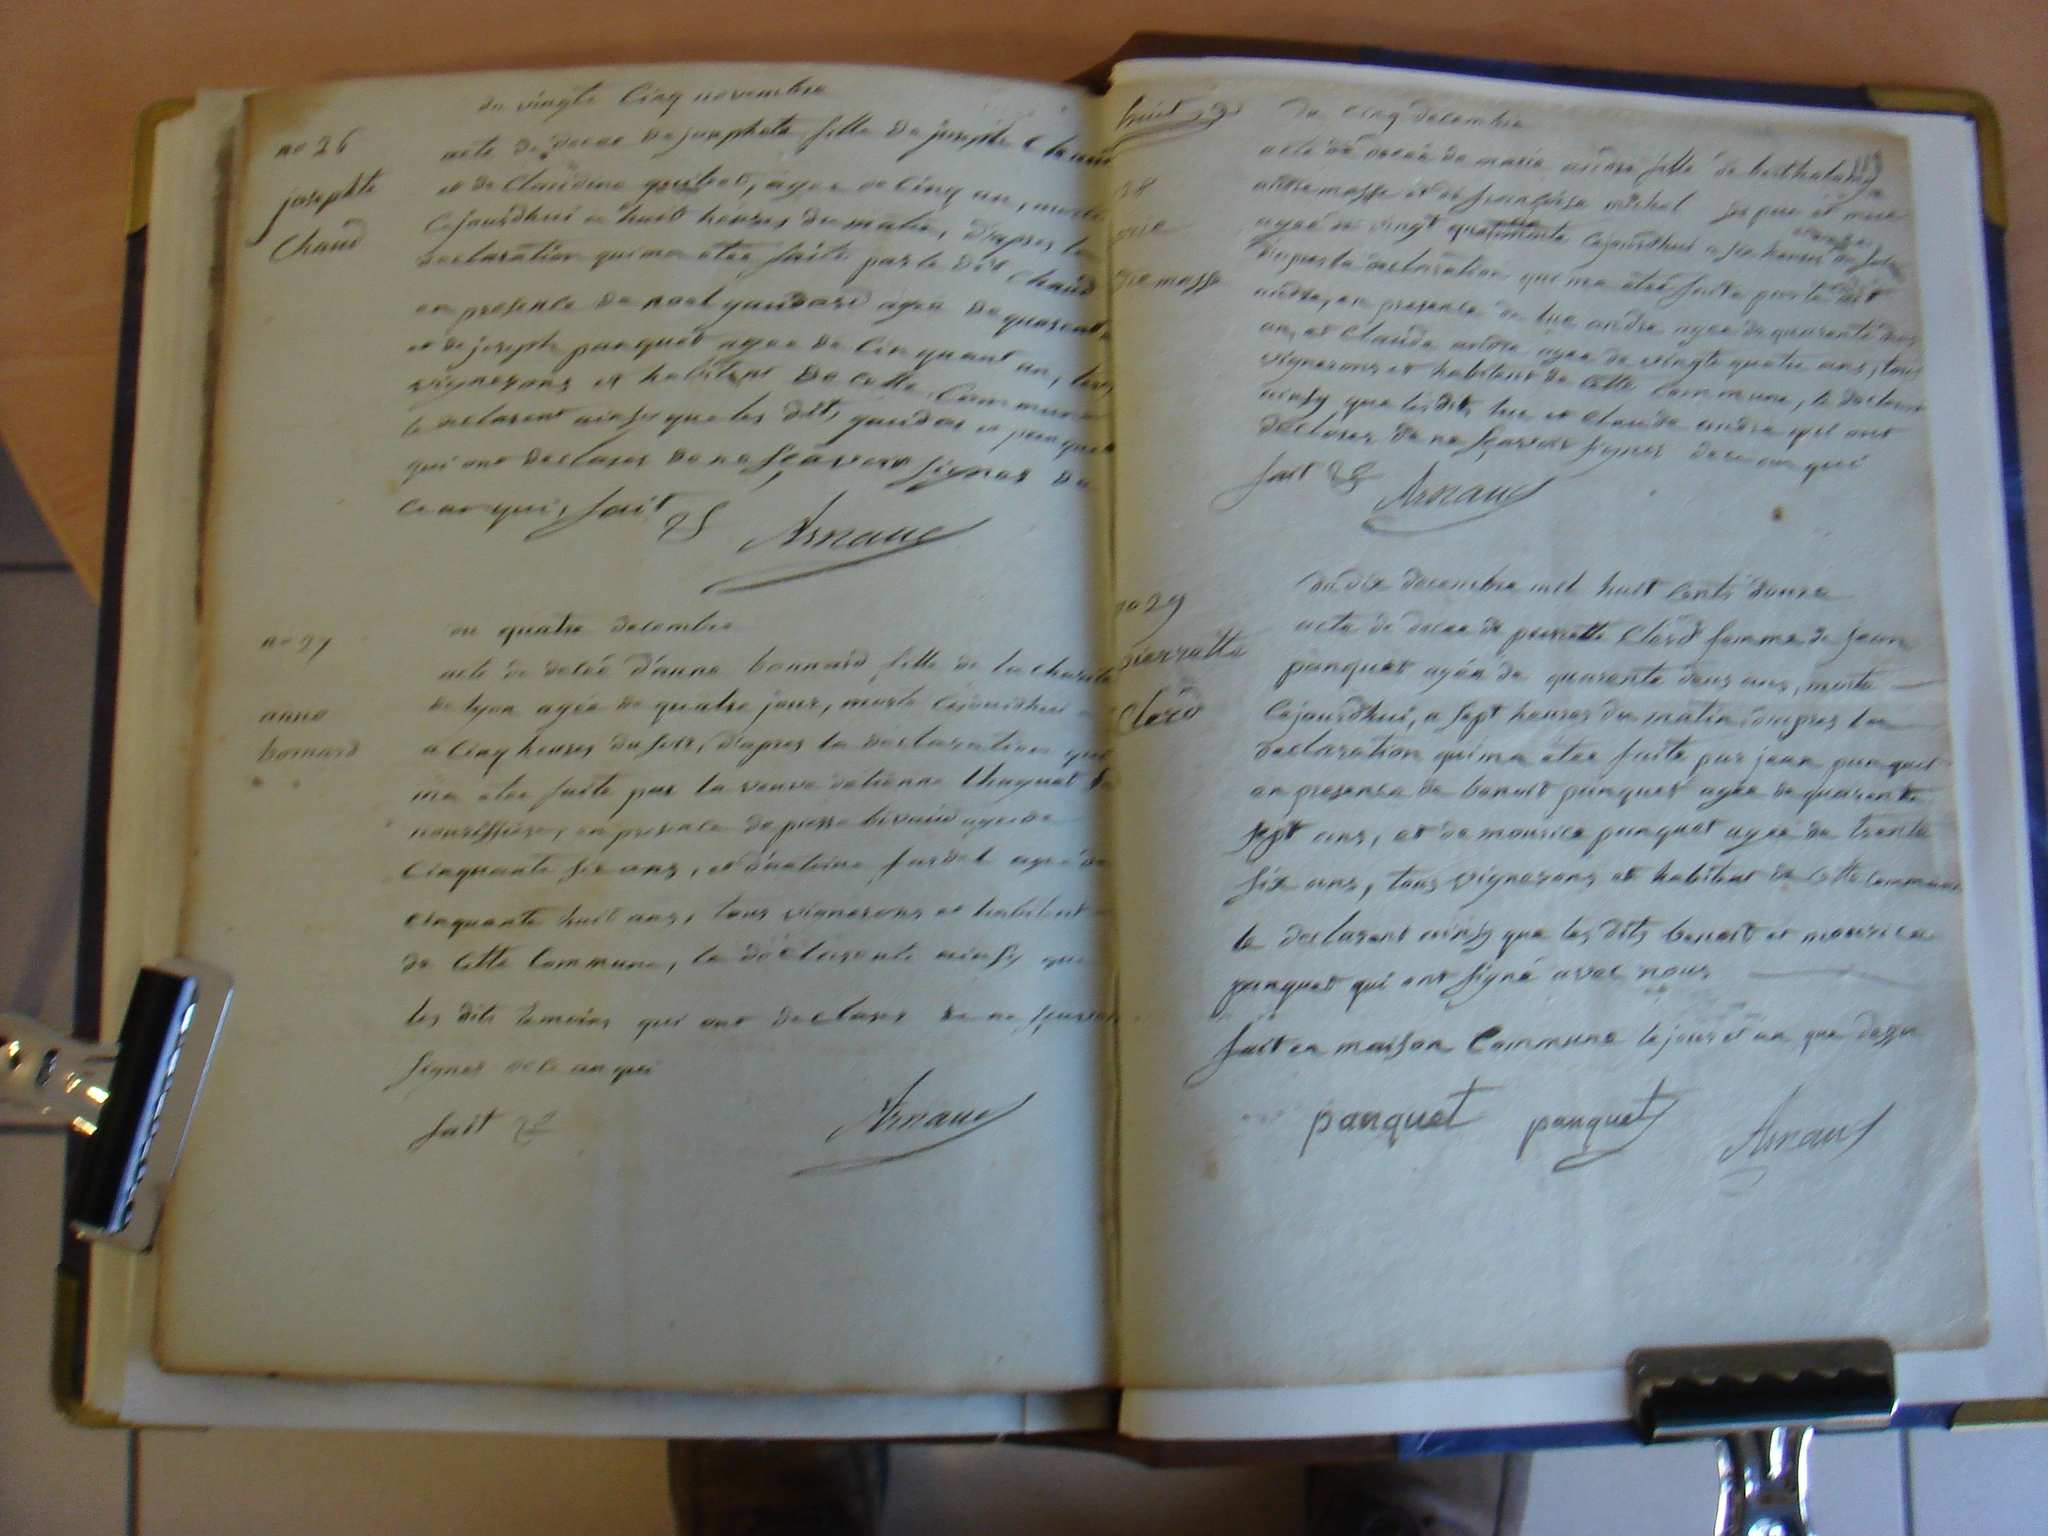 du vingte cinq novembre
no 26
josephte
Chaud
acte de decee de josephete fille de joseph Chaud
et de Claudine agee de cinq an, morte
cejourdhui a huit heures du matin, d'apres la
declaration qui ma etee faite par le dit Chaud
en presence de noel gaudard agee de quarente
et de joseph panquet agee de cinquant an, tous
vignerons et habitent de cette Commune
le declarent ainsy que les dits gaudar et panquet
qui ont declarer de ne sçavoir signer de
ce en qui, fait
Arnaud
no 27
anne
bonnard
du quatre decembre
acte de decée d'anne bonnard fille de la Charité
de lyon agée de quatre jour, morte cejourdhui
a cinq heures du soir, d'apres la declaration qui
ma etee faite par la veuve detienne Chuquet
nourissiere, en presence de pierre agee de
cinquante six ans, et d'antoine fardel agée de
cinquante huit ans, tous vignerons et habitent
de cette Commune, le déclarent ainsy que
les dits temoins qui ont declarer de ne sçavoir
signer de ce en qui
fait
Arnaud
huit
du cinq decembre
acte de decée de marie andre fille de berthelemy
andre masse et de françoise michel ses pere et mere
agée de vingt cejourdhui a six heures du soir
d'apres la declaration qui ma etee faite par le dit
andre, en presence de luc andre agee de quarente deux
an, et Claude andre agee de vingte quatre ans, tous
vignerons et habitent de cette Commune, le declarent
ainsy que les dits luc et Claude andre qui ont
declarer de ne sçavoir signer de ce en qui
fait
Arnaud
no 29
pierrette
Clerd
du dix decembre mil huit cents douze
acte de decee de pierrette Clerd femme de jean
panquet agée de quarente deux ans, morte
cejourdhui, a sept heures du matin, d'apres la
declaration qui ma étée faite par jean panquet
en presence de benoit panquet agee de quarente
sept ans, et de mourice panquet agee de trente
six ans, tous vignerons et habitent de cette commune
le declarent ainsy que les dits benoit et mourice
panquet qui ont signé avec nous
fait en maison Commune le jour et an que dessu
panquet panquet Arnaud